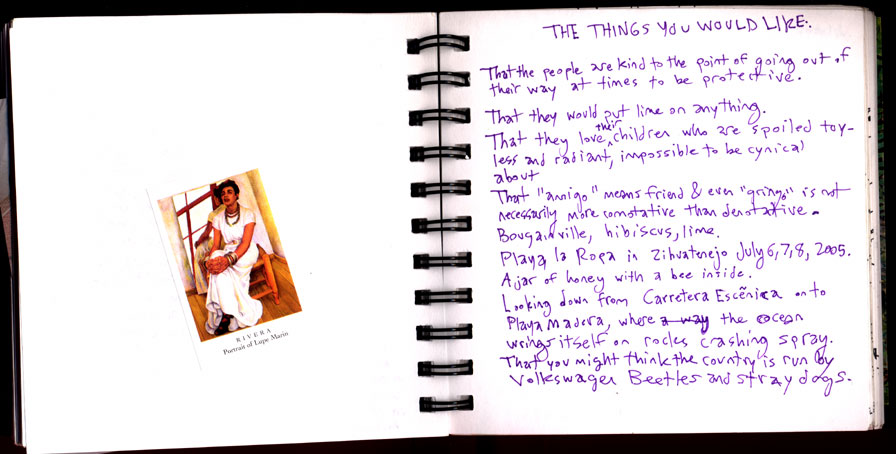 RIVERA
Portrait of Lupe Marin
THE THINGS YOU WOULD LIKE:
That the people are kind to the point of going out of
their way at times to be protective.
That they would put lime on anything.
That they love their children who are spoiled toy-
less and radiant, impossible to be cynical
about
That "amigo" means friend & even "gringo" is not
necessarily more connotative than denotative.
Bougainville, hibiscus, lime.
Playa la Ropa in Zihuatenejo July 6, 7, 8, 2005.
A jar of honey with a bee inside.
Looking down from Carretera Escénica onto
Playa Madera, where a way the ocean
wrings itself on rocks crashing spray.
That you might think the country is run by
Volkswagen Beetles and stray dogs.